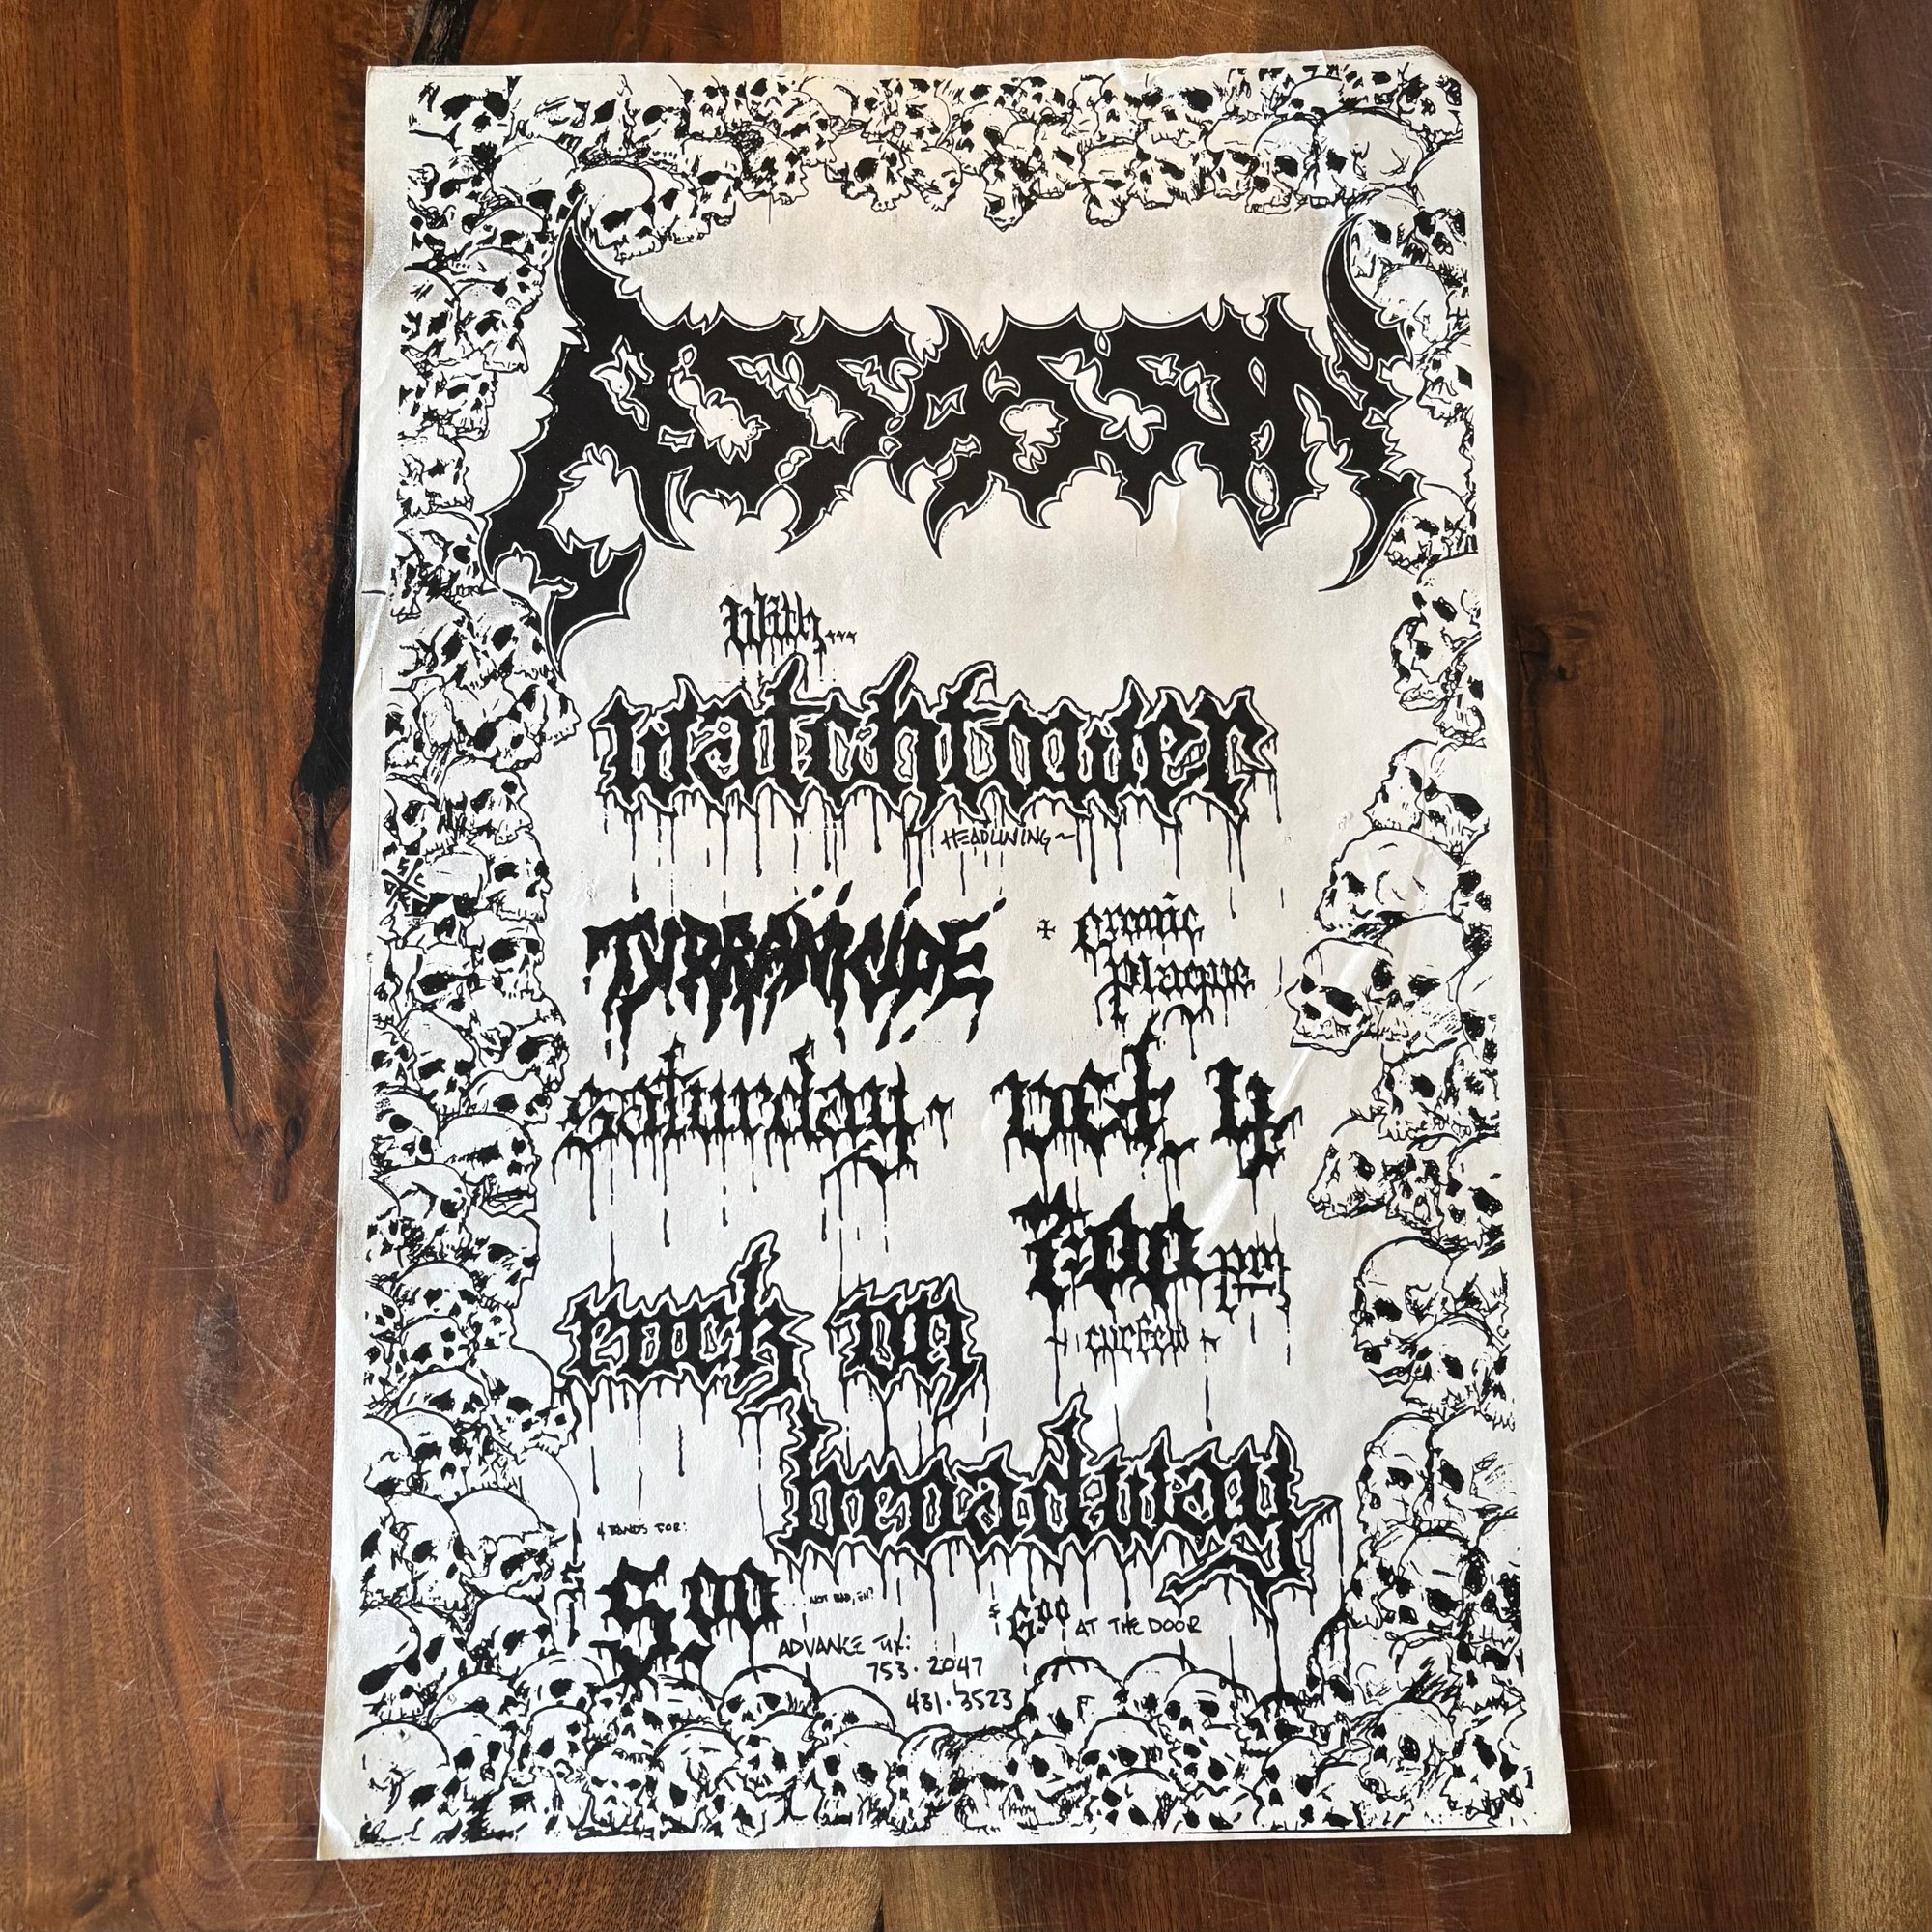 ASSASSIN
With...
watchtower
HEADLINING~
TYRRANICIDE + cronic
plaque
saturday - oct. 4
7:00 pm
- curfew -
rock on
broadway
4 BANDS FOR:
$5.00 ...NOT BAD, EH?
$6.00 AT THE DOOR
ADVANCE TIX:
753.2047
431.3523